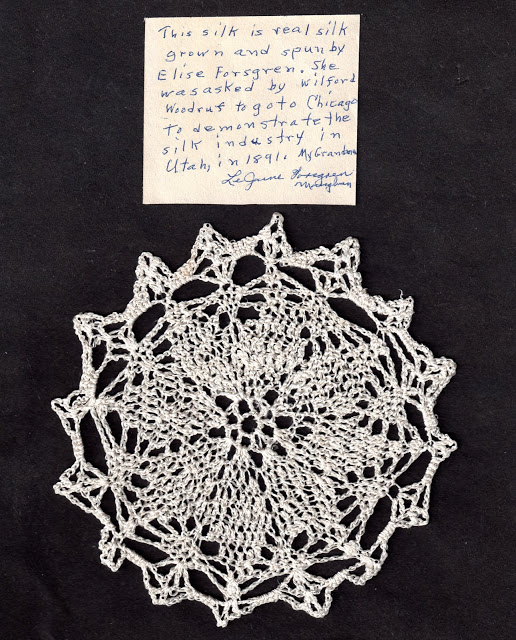 This silk is real silk
grown and spun by
Elise Forsgren. She
was asked by Wilford
Woodruf to go to Chicago
to demonstrate the
silk industry in
Utah, in 1891. My Grandma
LeJune Forsgren